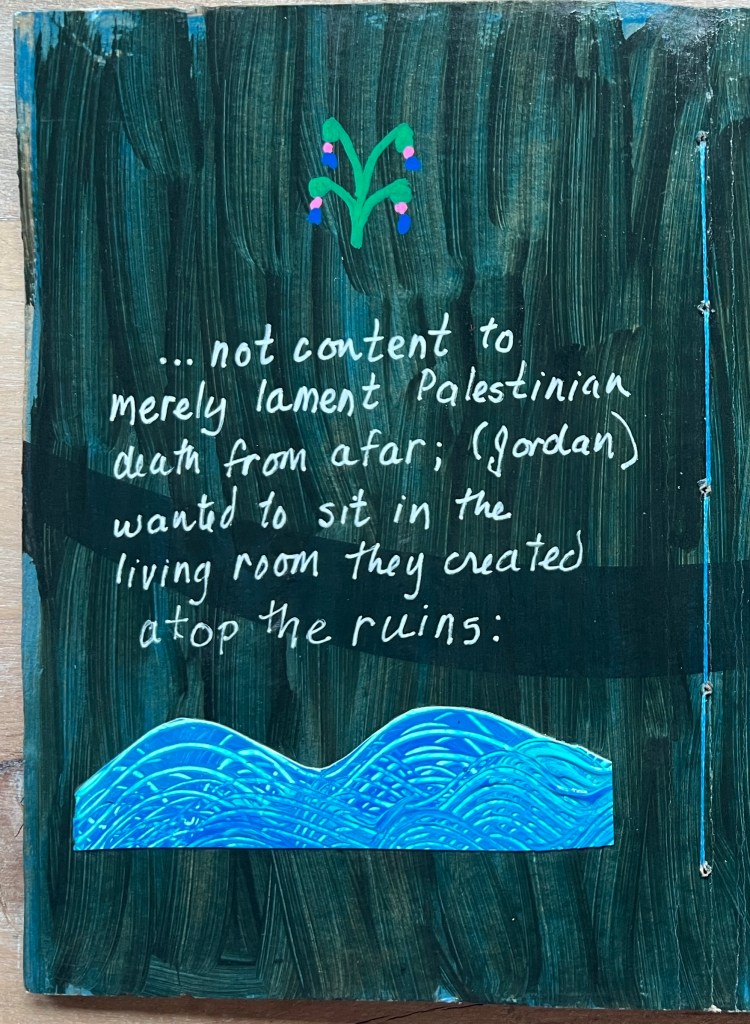 ... not content to
merely lament Palestinian
death from afar; (Jordan)
wanted to sit in the
living room they created
atop the ruins: